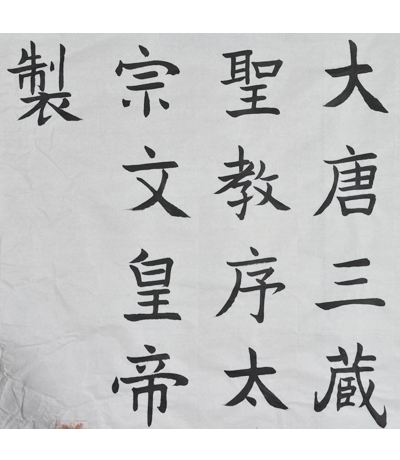 大唐三蔵
聖教序太
宗文皇帝
製